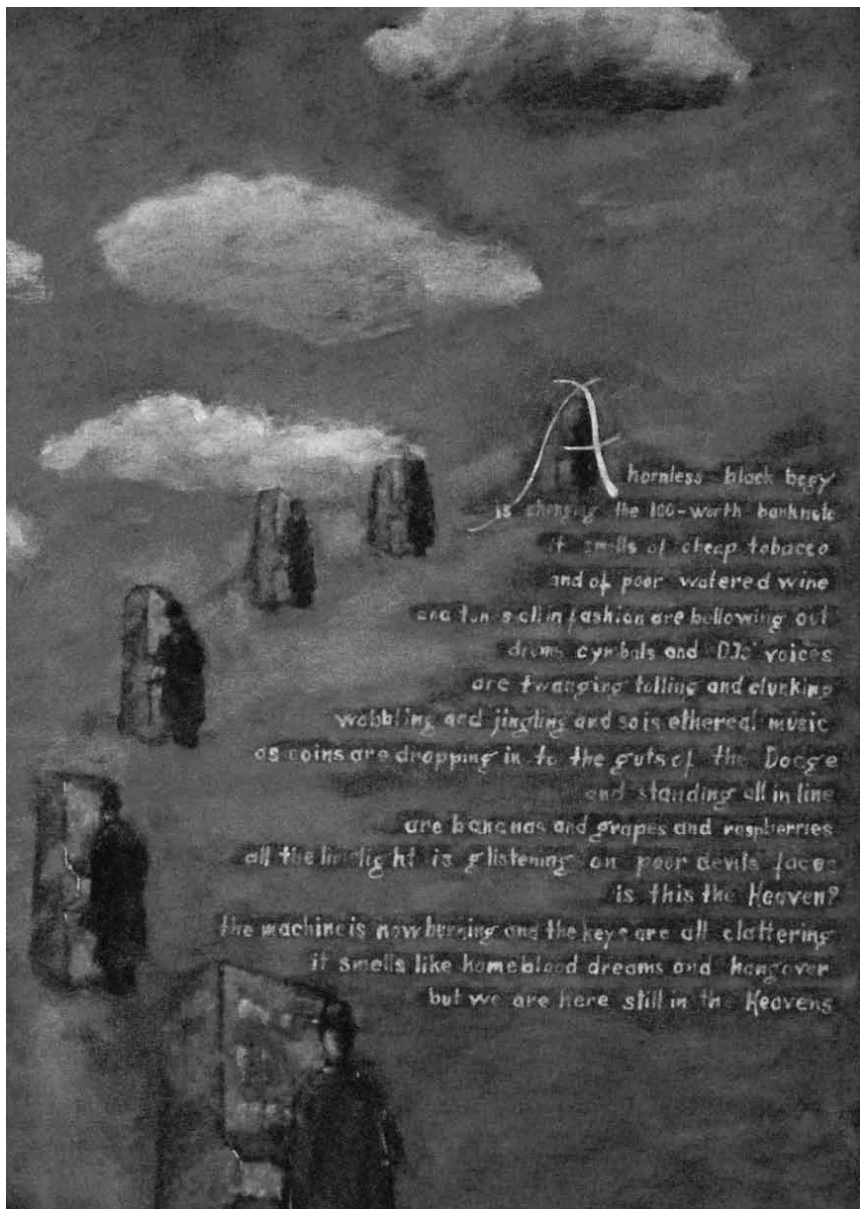 A hornless black bogy
is changing the 100-worth banknote
it smells of cheap tobacco
and of poor watered wine
and all in fashion are bellowing out
drums cymbals and DJs' voices
are twanging tolling and clunking
wobbling and jingling and so is ethereal music
as coins are dropping in to the guts of the Docge
and standing all in line
are bananas and grapes and raspberries
all the limelight is glistening on poor devils faces
is this the Heaven?
the machine is now burning and the keys are all clattering
it smells like home blood dreams and hangover
but we are here still in the Heavens